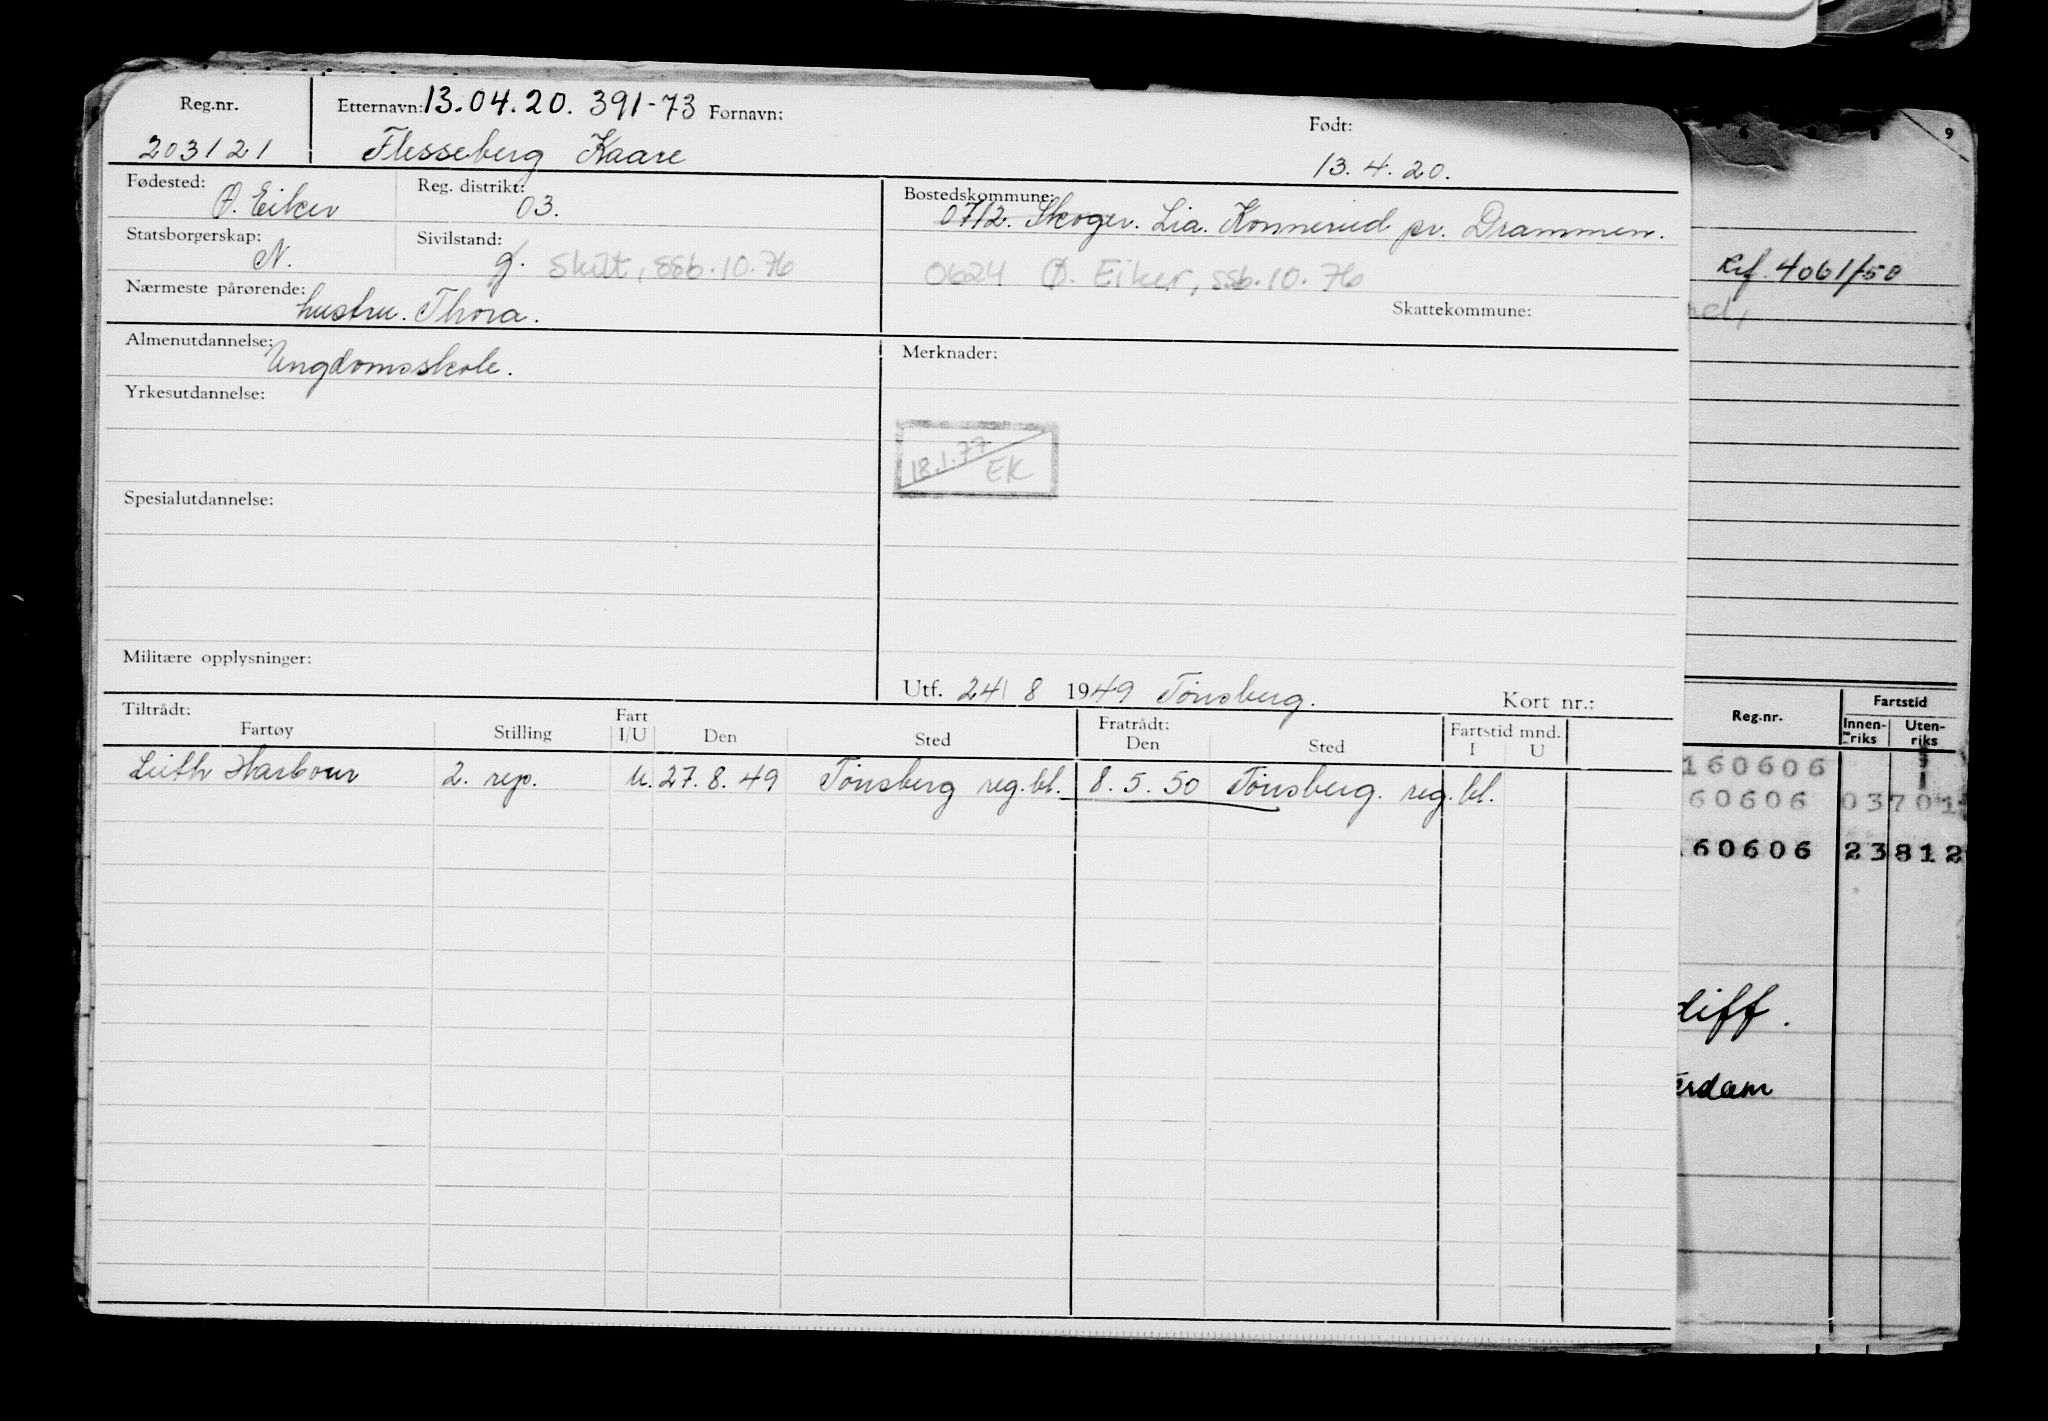 Reg.nr. Etternavn: 13.04.20. 391-73 Fornavn: Født:
203121 Flesseberg Kaare 13.4.20.
Fødested: Ø. Eiker Reg. distrikt: 03. Bostedskommune: 0712. Skoger. Lia. Konnerud pr. Drammen.
Statsborgerskap: N. Sivilstand: g. Skilt, ssb.10.76 0624 Ø. Eiker, ssb.10.76
Nærmeste pårørende: hustru. Thora. Skattekommune:
Almenutdannelse: Ungdomsskole. Merknader:
Yrkesutdannelse:
18.1.77 EK
Spesialutdannelse:
Militære opplysninger:
Utf. 24/8 1949 Tønsberg. Kort nr.:
Tiltrådt: Fart Fratrådt: Fartstid mnd.
Fartøy Stilling I/U Den Sted Den Sted I U
Leith Harbour 2. rep. U. 27.8.49 Tønsberg reg.bl. 8.5.50 Tønsberg. reg.bl.
9
Ref. 4061/50
Reg.nr. Fartstid
Innen-riks Uten-riks
160606
60606 03701
160606 23812
diff.
erdam